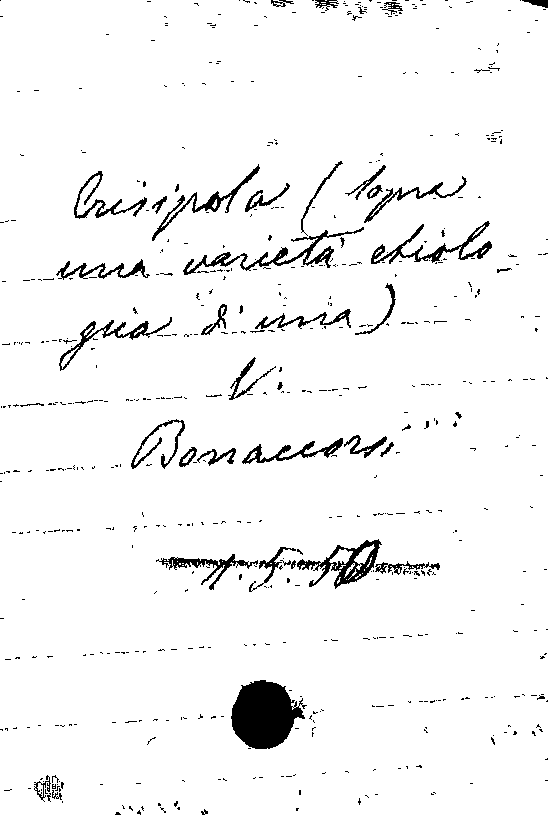 Crisipola (Sopra
una varietà etiolo_
gica di una)
V.
Bonaccorsi
1.5.50